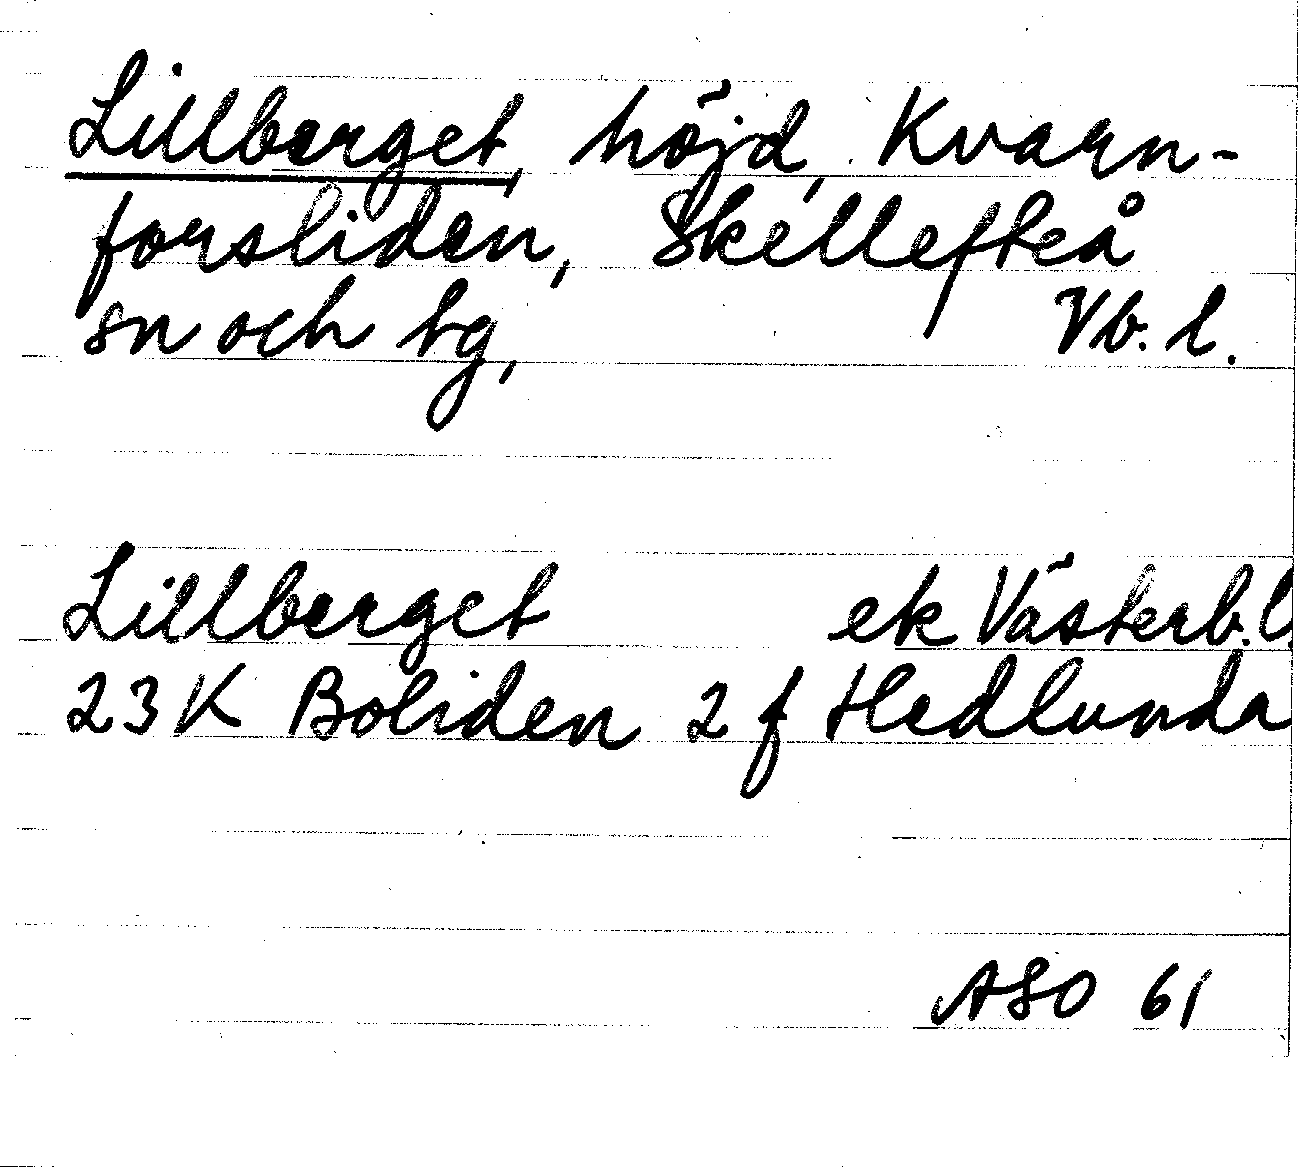 Lillberget, höjd, Kvarn-
forsliden, Skellefteå
sn och tg, Vb. l.
Lillberget ek Västerb. l.
23 K Boliden 2 f Hedlunda
ASO 61